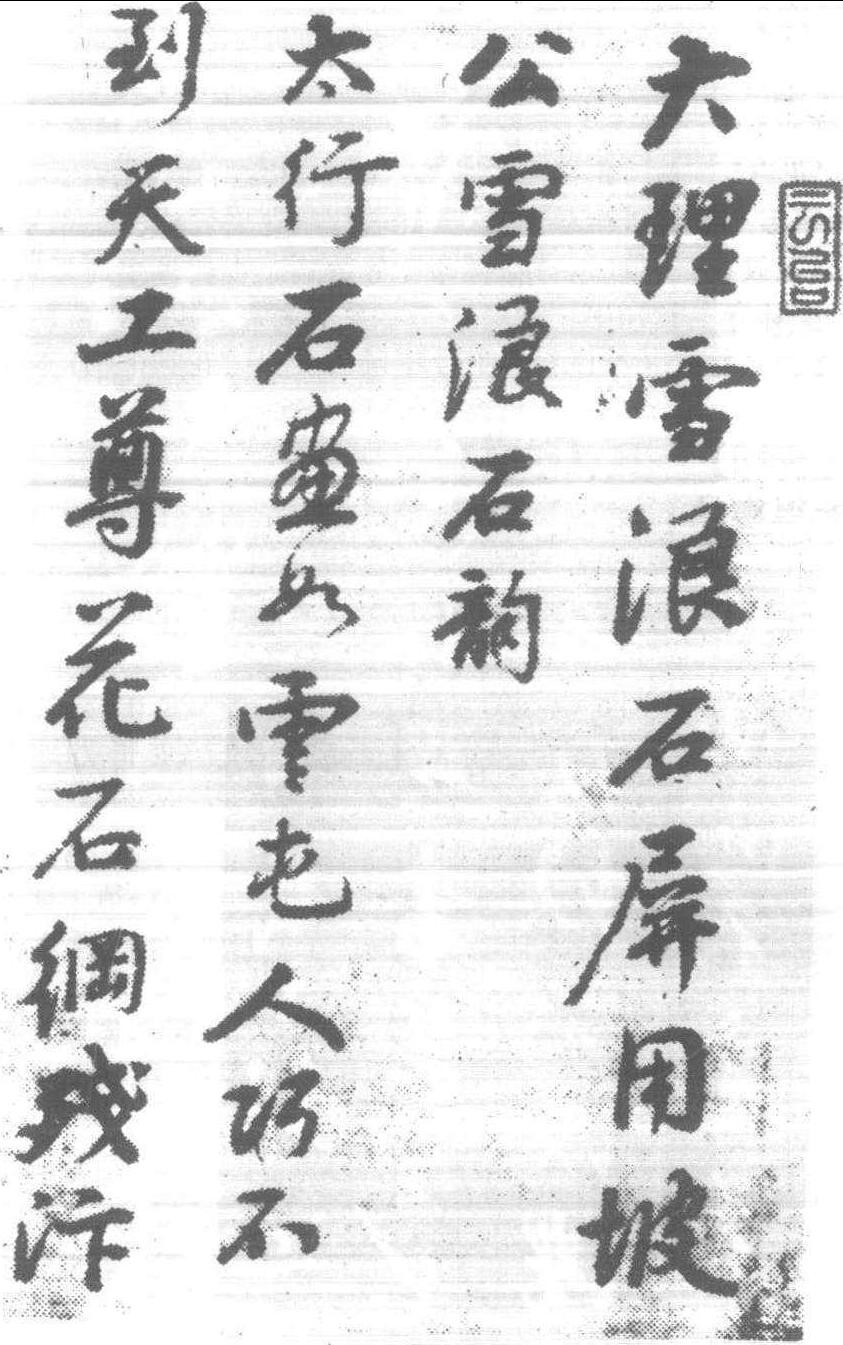 大理雪浪石屏用坡
公雪浪石韵
太行石畫如雲屯人巧不
到天工尊花石綱殘汴